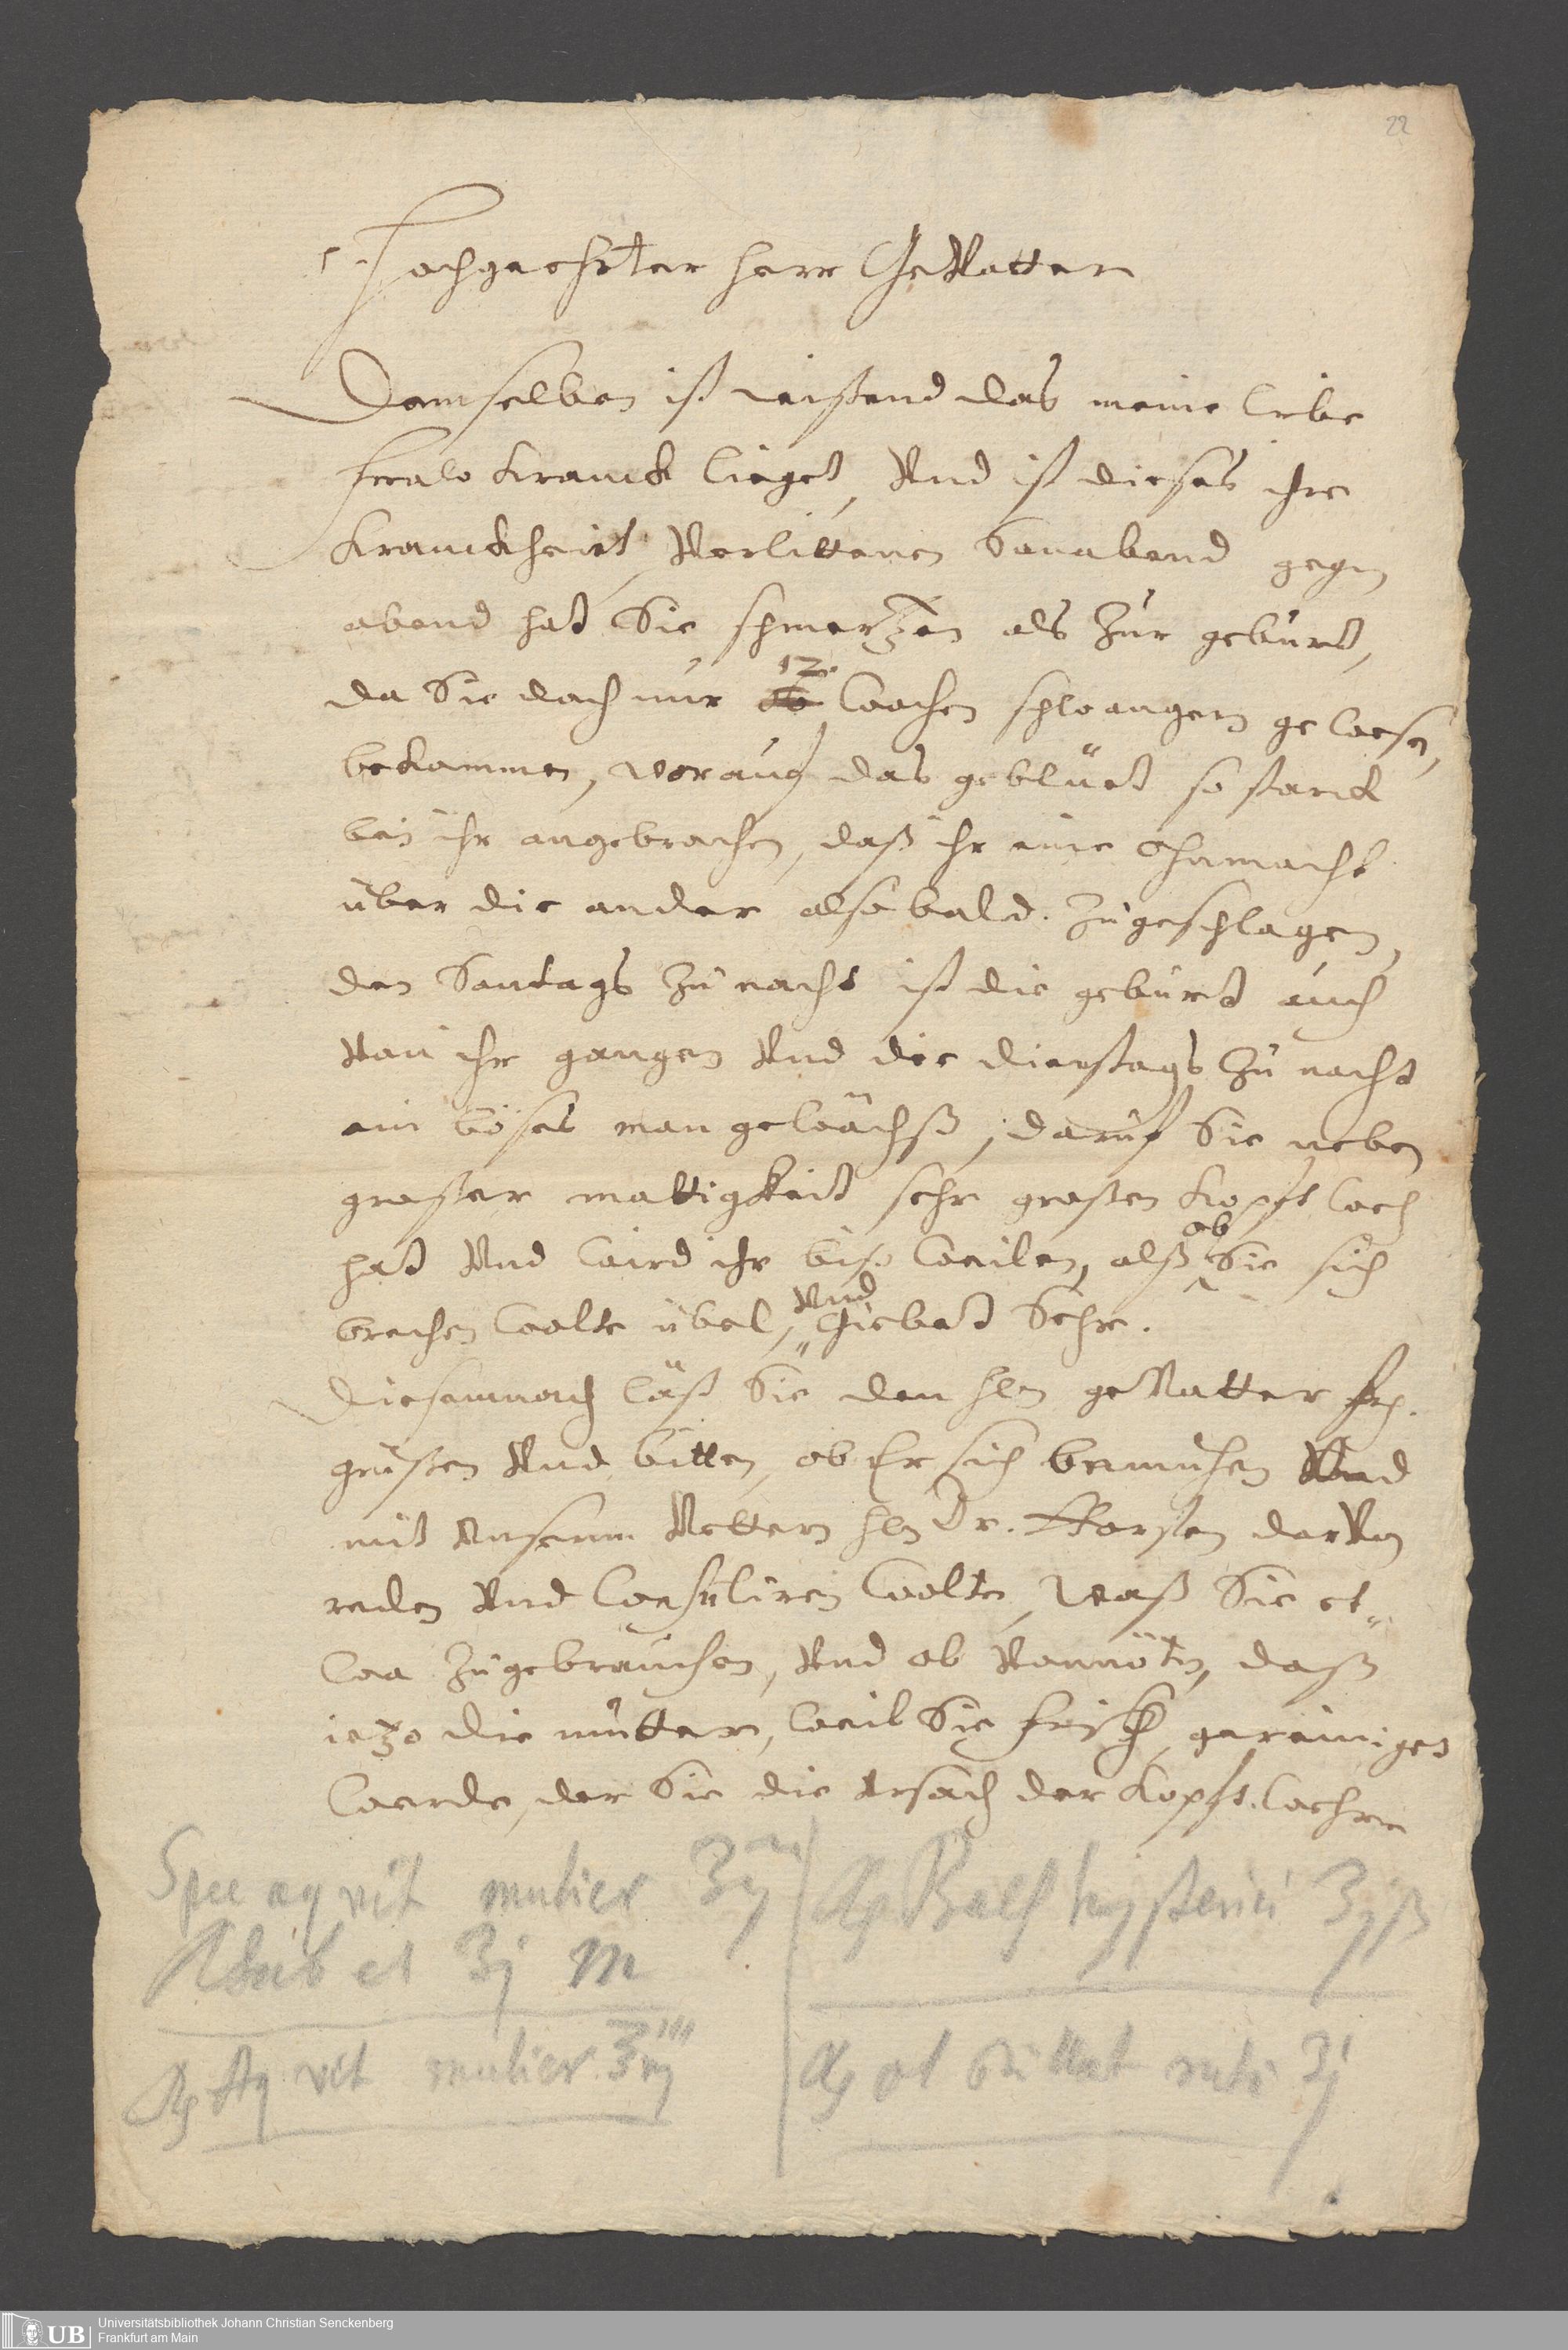 22
Hochgeehrter Herr GeVatter
Demselben ist wissend das meine liebe
fraw kranck lieget, Vnd ist dieses ihre
kranckheit: Verlittenen Sonabend gegen
abend hat Sie schmertzen als zur geburt,
da Sie doch nur 12. wochen schwanger gewesen,
bekommen, worauf das geblüet so starck
bei ihr angebrochen, daß ihr eine ohnmacht
über die ander alsobald zugeschlagen,
den Sontags zu nacht ist die geburt auch
Von ihr gangen Vnd die dienstags zu nacht
ein böses mongewächß, daruf Sie neben
großer mattigkeit sehr großen kopft weh
hat Vnd wird ihr bisweilen, alß ob Sie sich
brechen wolte übel, Vnd Giebet Sehr.
Diesemnach läst Sie den Hern geVatter fr.
grüßen Vnd bitten, ob Er sich bemuhen Vnd
mit Vnserm Vettern Hern Dr. Horsten darVon
reden Vnd Consuliren wolte, Waß Sie et„
wa zugebrauchen, Vnd ob Vonnöten, daß
ietzo die mutter, weil Sie frisch, gereiniget
werde, der Sie die Vrsach der kopft wehen
Spec aq vit mulier ʒij
Rhab el ʒj M
Rp Aq vit mulier ʒiij
Rp Bals hysterici ʒjß
Rp ol still rutae ʒj
Universitätsbibliothek Johann Christian Senckenberg
UB Frankfurt am Main